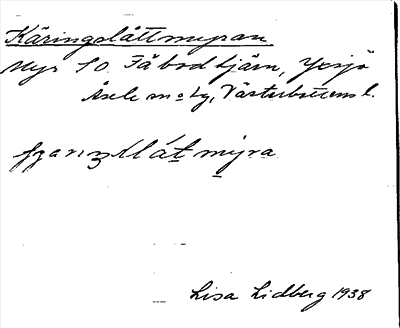 Käringslåttmyran.
Myr SO. Fäbodtjärn, Yxsjö
Åsele m o ly, Västerbottens l.
Lisa Lidberg 1938